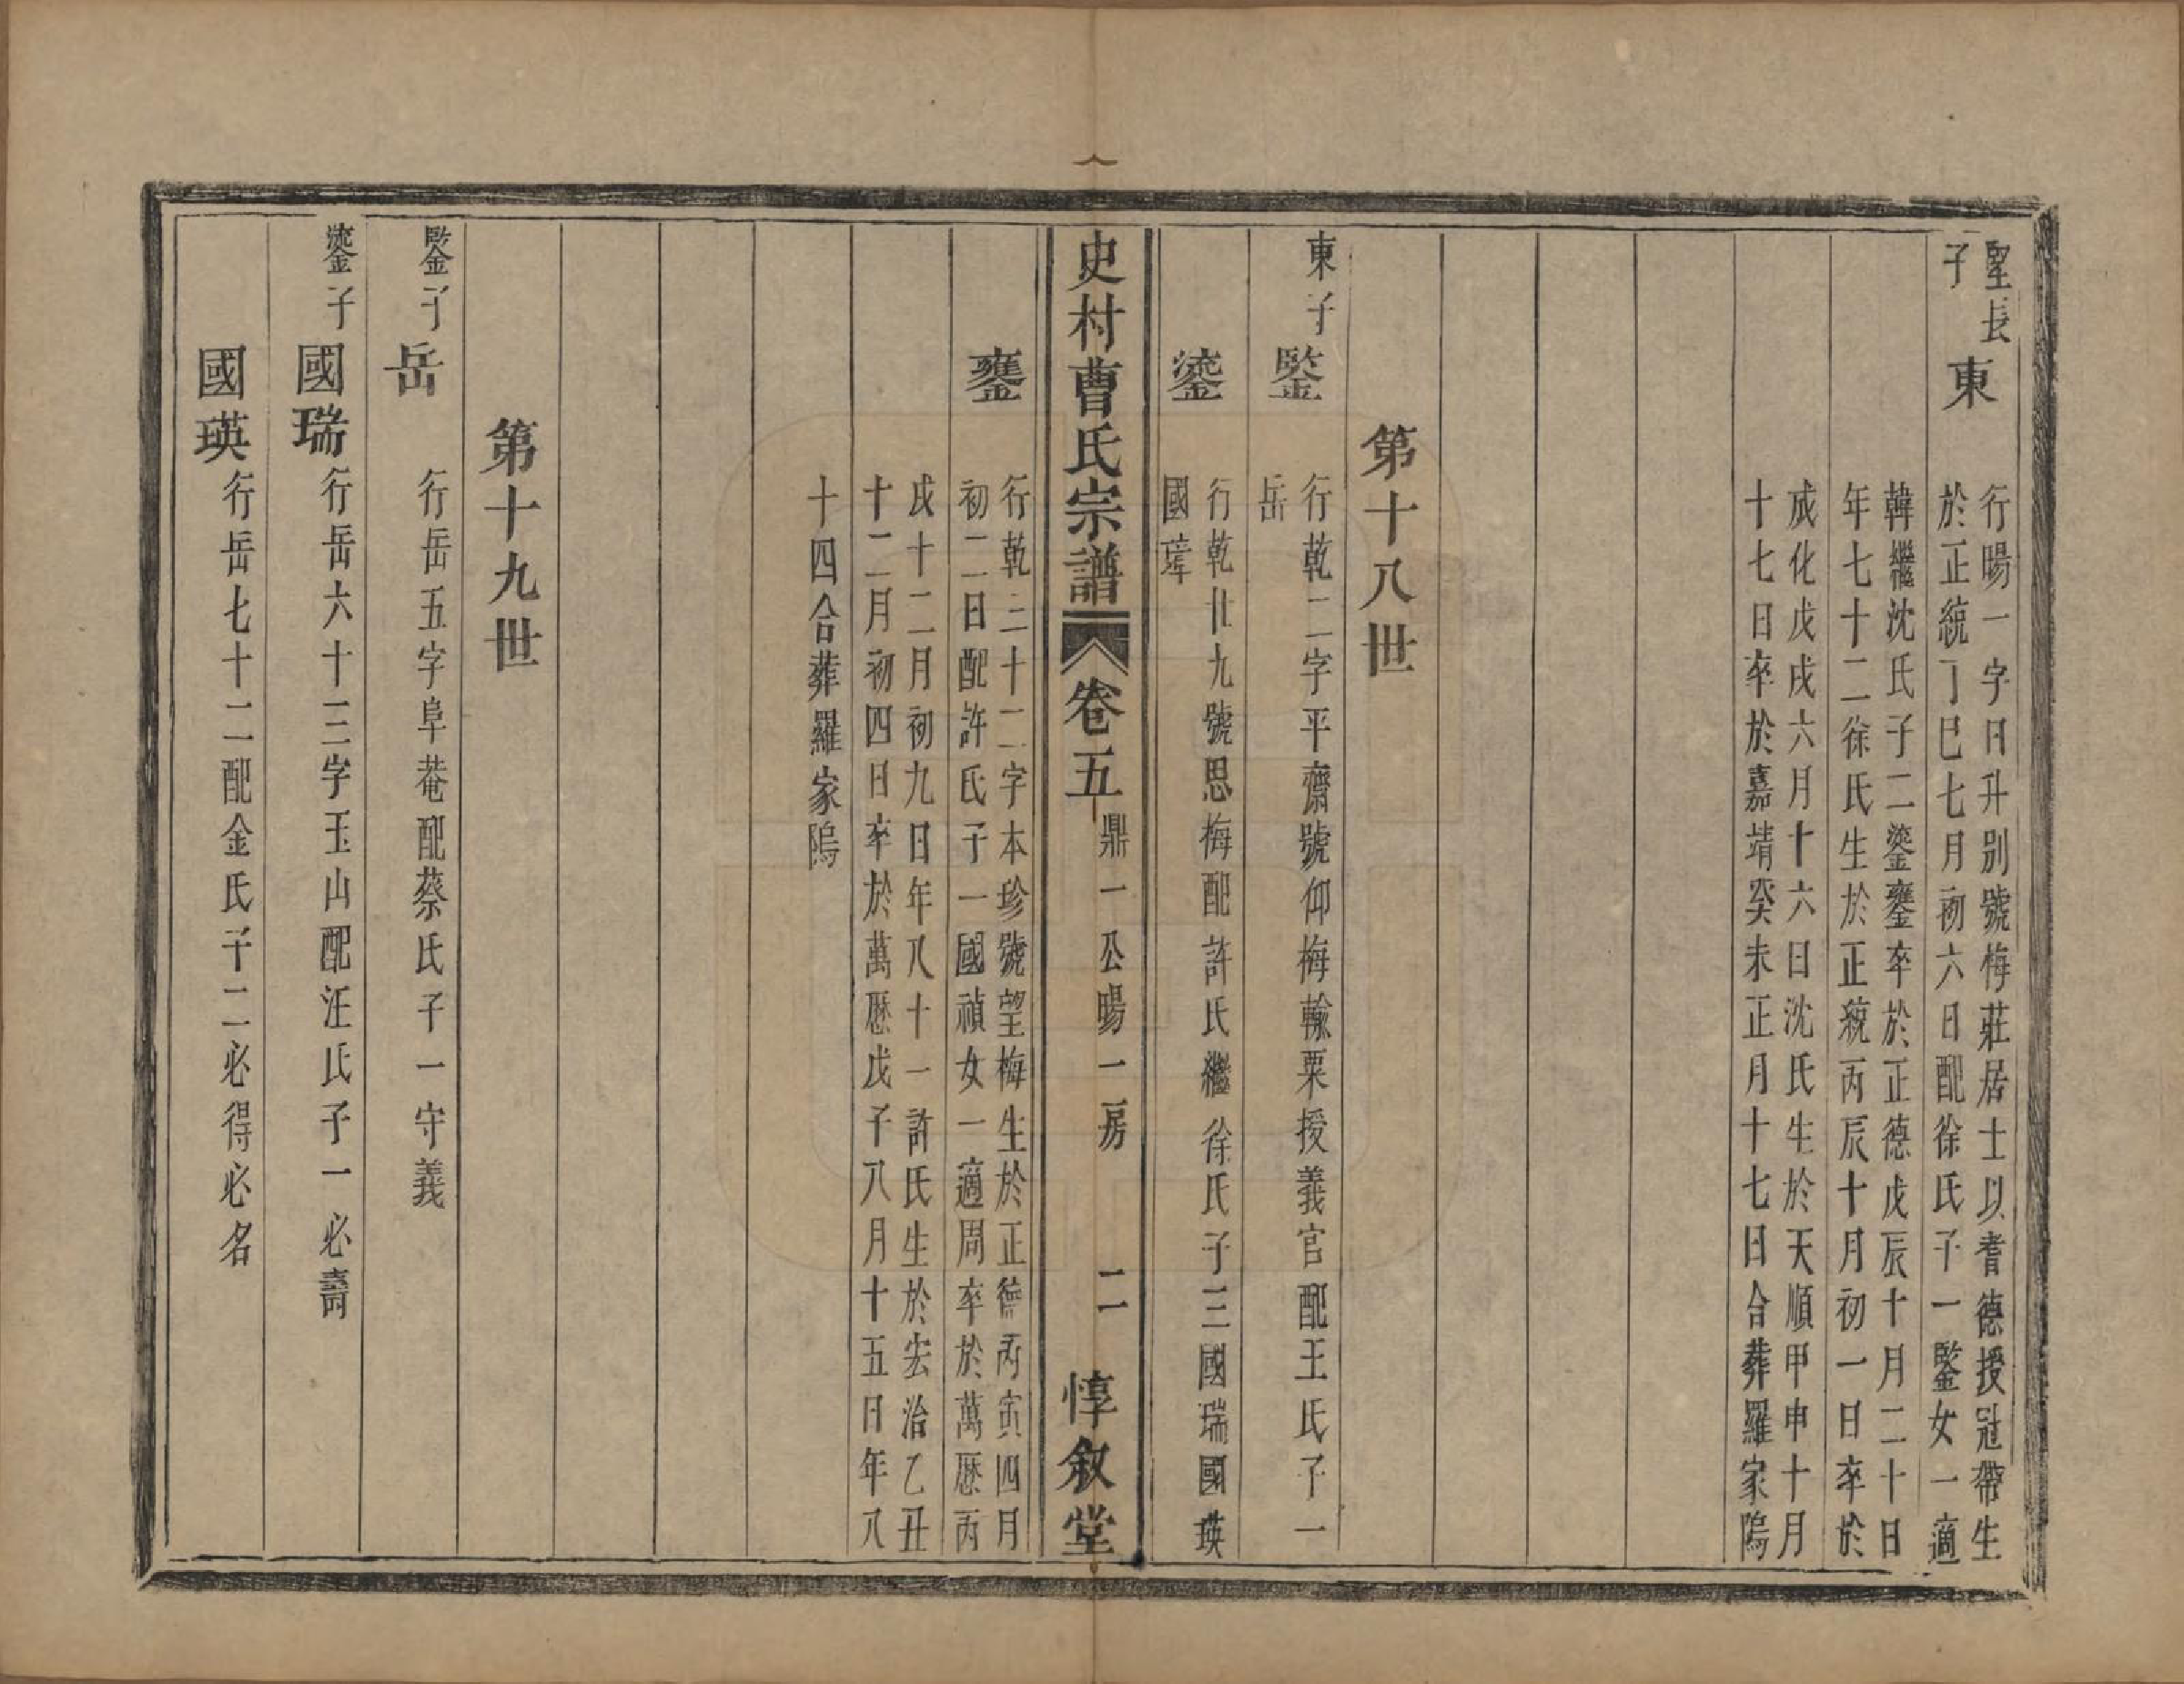 聖長
子
東
行暘一字日升別號梅莊居士以耆德授冠帶生
於正統丁巳七月初六日配徐氏子一鑒女一適
韓繼沈氏子二鎏鏖卒於正德戊辰十月二十日
年七十二徐氏生於正統丙辰十月初一日卒於
成化戊戌六月十六日沈氏生於天順甲申十月
十七日卒於嘉靖癸未正月十七日合葬羅家隖
第十八世
東子
鋻
行乾二字平齋號仰梅輸粟授義官配王氏子一
岳
鎏
行乾廿九號思梅配許氏繼徐氏子三國瑞國瑛
國瑋
史村曹氏宗譜
卷五
鼎一公暘一房
二
惇敘堂
行乾三十二字本珍號望梅生於正德丙寅四月
初二日配許氏子一國禎女一適周卒於萬歷丙
戌十二月初九日年八十一許氏生於宏治乙丑
十二月初四日卒於萬歷戊子八月十五日年八
十四合葬羅家隖
第十九世
鋻子
岳
行岳五字阜菴配蔡氏子一守義
鎏子
國瑞
行岳六十三字玉山配汪氏子一必壽
國瑛
行岳七十二配金氏子二必得必名